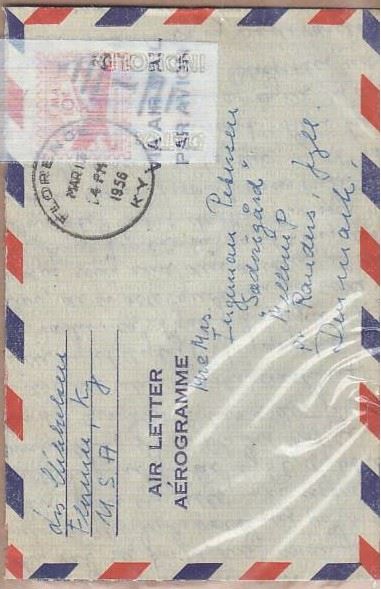 FLORENCE
MAR 1
4 PM
1956
KY
VIA AIR MAIL
PAR AVION
Mr & Mrs
Ingemann Pedersen
Mellerup
pr Randers, Jyll.
Danmark
AIR LETTER
AÉROGRAMME
Lis Mikkelsen
Florence, Ky
U S A